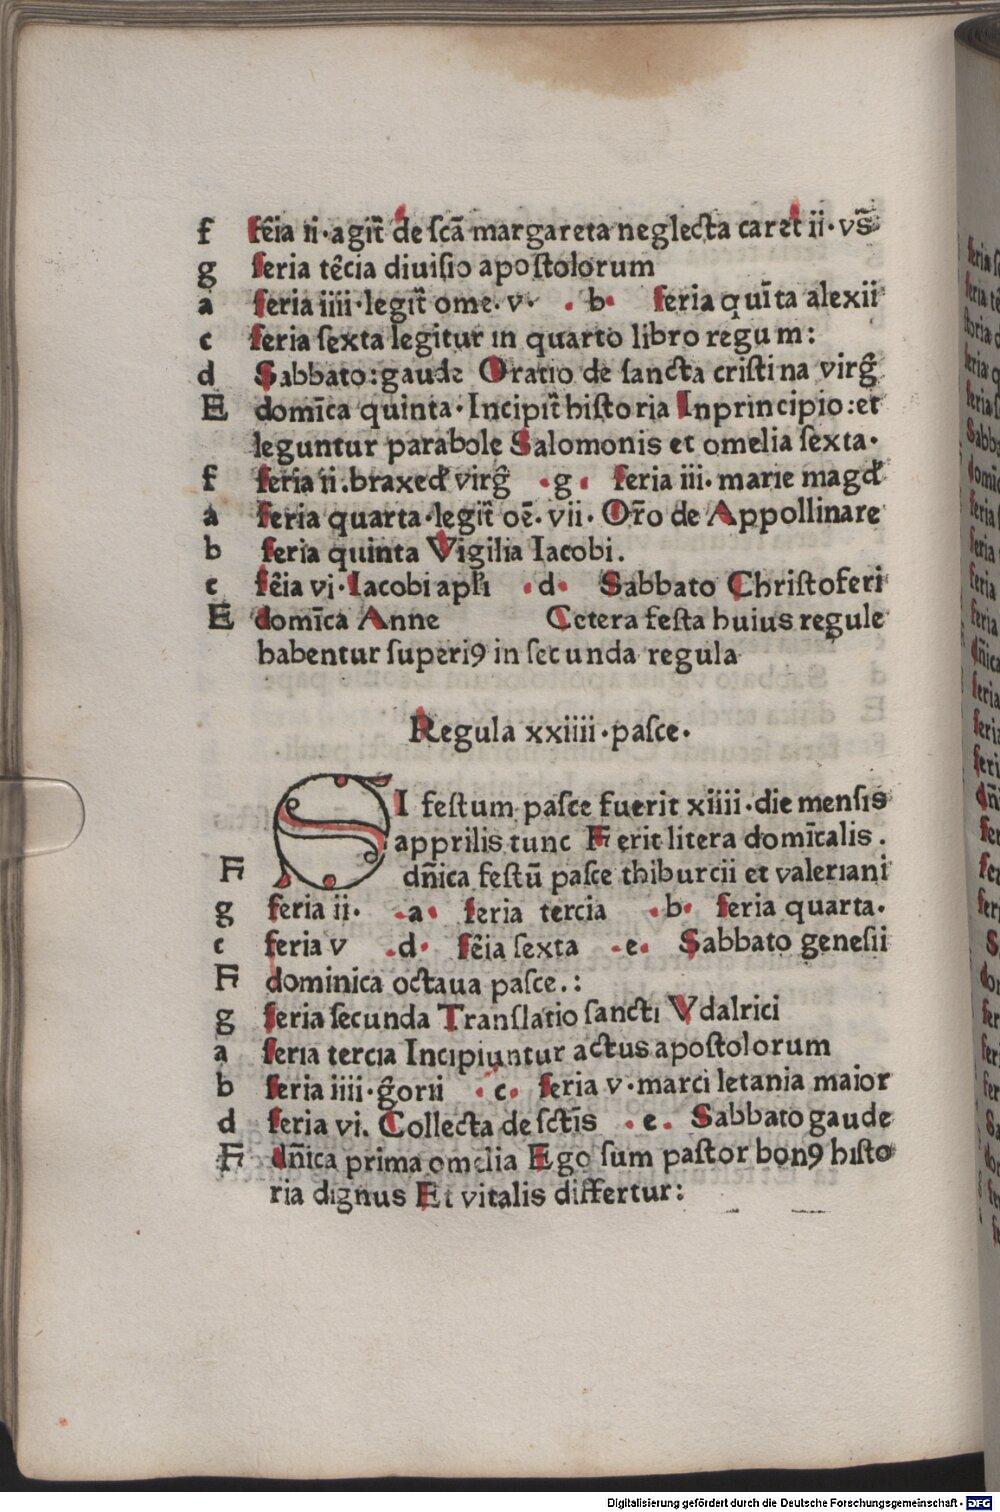 f fēia ii·agit̃ de ſcā margareta neglecta caret ii·vs̃
g feria tēcia diuiſio apoſtolorum
a feria iiii·legit̃ ome·v· ·b· feria quīta alexii
c feria ſexta legitur in quarto libro regum:
d Sabbato:gaude Oratio de ſancta criſtina virḡ
E domīca quinta·Incipit̃ hiſtoria Inprincipio:et
leguntur parabole Salomonis et omelia ſexta·
f feria ii.braxed̄ virḡ ·g· feria iii·marie magd̄
a feria quarta·legit̃ oē·vii·Or̃o de Appollinare
b feria quinta Vigilia Iacobi.
c fēia vi·Iacobi apl̃i ·d· Sabbato Chriſtoferi
E domīca Anne Cetera feſta huius regule
habentur ſuperi9 in ſecunda regula
Regula xxiiii·paſce·
SI feſtum paſce fuerit xiiii·die menſis
apprilis tunc A erit litera domīcalis.
A dñica feſtū paſce thiburcii et valeriani
g feria ii· ·a· feria tercia ·b· feria quarta·
c feria v ·d· fēia ſexta ·e· Sabbato geneſii
A dominica octaua paſce.:
g feria ſecunda Tranſlatio ſancti Vdalrici
a feria tercia Incipiuntur actus apoſtolorum
b feria iiii·ḡorii ·c· feria v·marci letania maior
d feria vi. Collecta de ſctīs ·e· Sabbato gaude
A dñica prima omelia Ego ſum paſtor bon9 hiſto
ria dignus Et vitalis differtur:
Digitalisierung gefördert durch die Deutsche Forschungsgemeinschaft - DFG